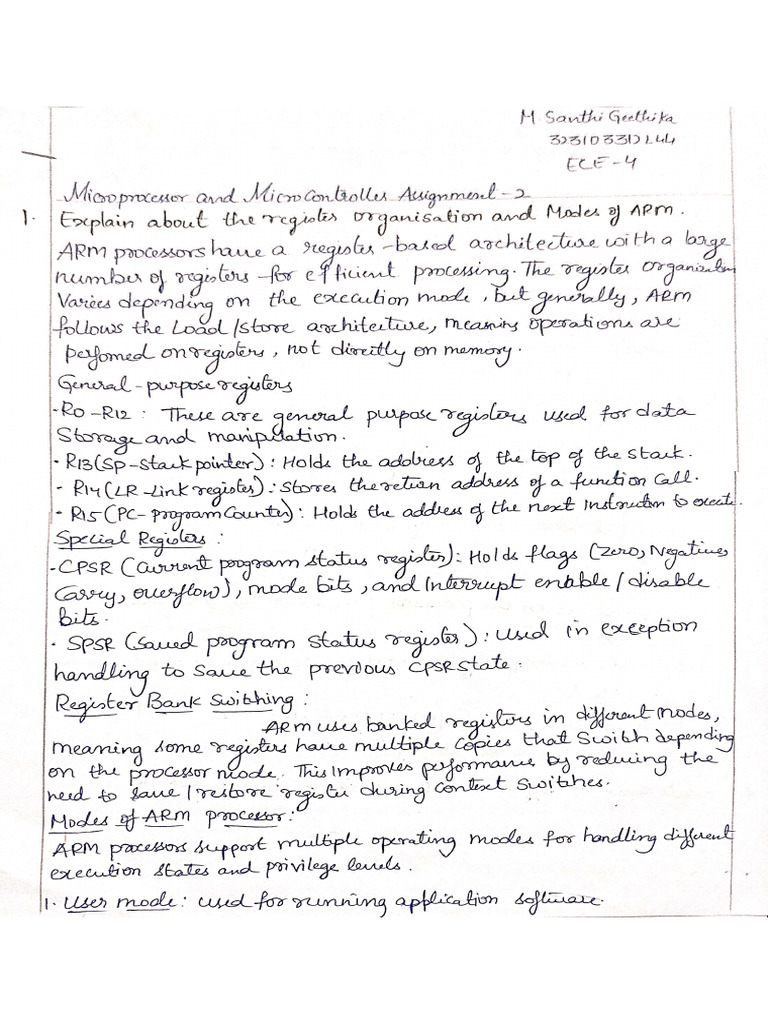 M. Santhi Geethika
323103312L44
ECE-4
Microprocessor and Microcontroller Assignment-2
1. Explain about the register organisation and Modes of ARM.
ARM processors have a register-based architecture with a large
number of registers for efficient processing. The register organization
varies depending on the execution mode, but generally, ARM
follows the Load/store architecture, meaning operations are
perfomed on registers, not directly on memory.
General-purpose registers
-R0-R12: These are general purpose registers used for data
Storage and manipulation.
- R13(SP-stack pointer): Holds the address of the top of the stack.
- R14(LR-Link register): Stores the return address of a function call.
- R15(PC-program Counter): Holds the address of the next instruction to execute.
Special Registers:
-CPSR (Current program status register): Holds flags (Zero, Negative,
Carry, overflow), mode bits, and interrupt enable/disable
bits.
- SPSR (Saved program status register): used in exception
handling to save the previous CPSR state.
Register Bank Switching:
ARM uses banked registers in different modes,
meaning some registers have multiple copies that switch depending
on the processor mode. This improves performance by reducing the
need to save/restore register during context switches.
Modes of ARM processor:
ARM processors support multiple operating modes for handling different
execution states and privilege levels.
1. User mode: used for running application software.